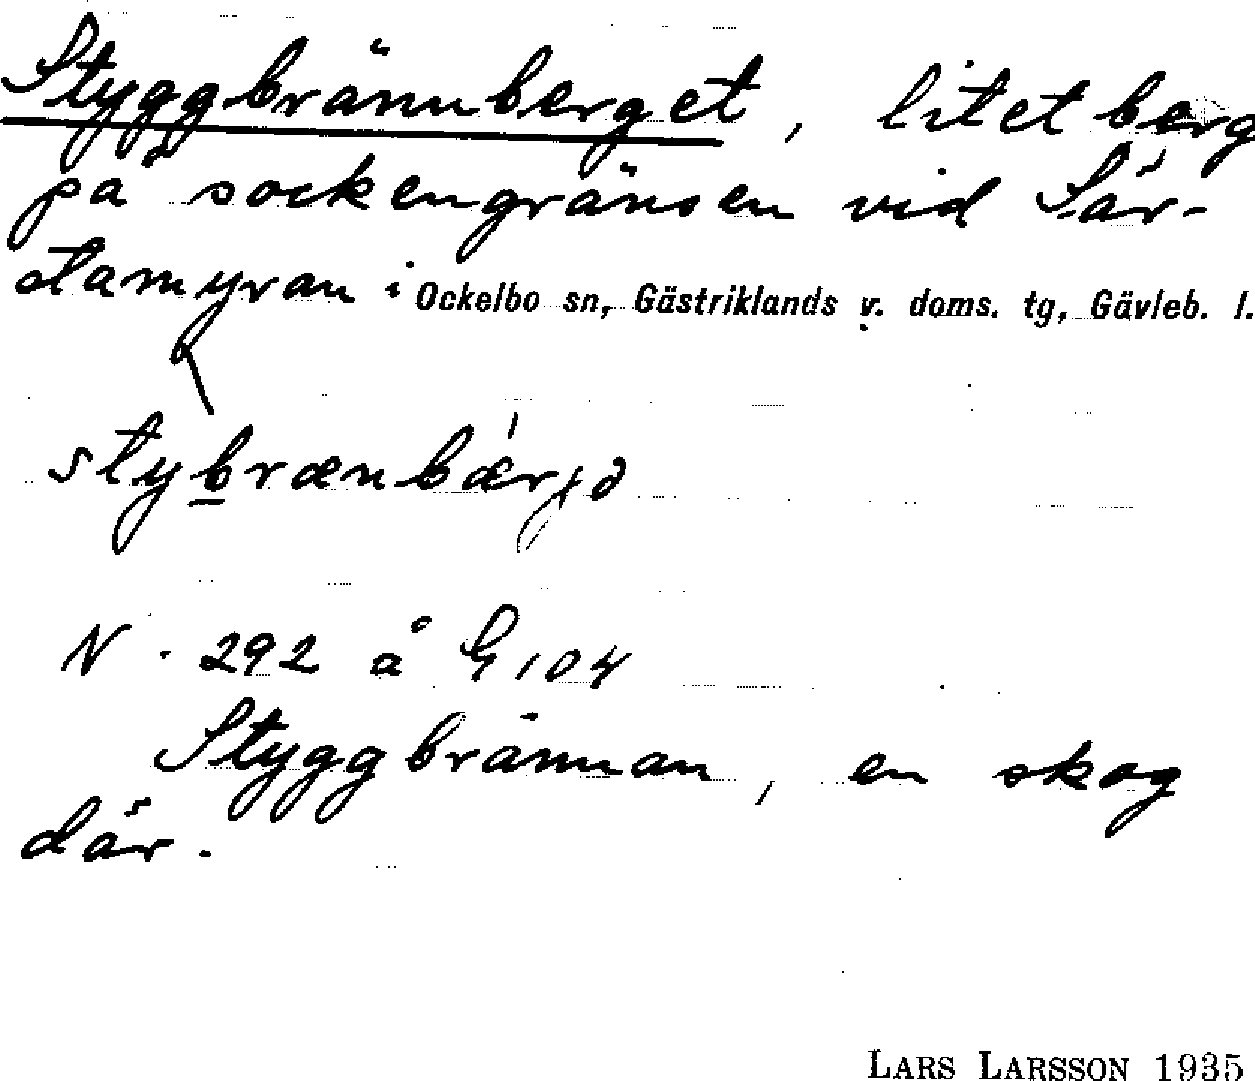 Styggbrännberget, litet berg
på sockengränsen vid Sär-
stamyran i Ockelbo sn, Gästriklands v. doms. tg, Gävleb. l.
stybrænbærjə
N. 292 å G 104
Styggbrännan, en skog
där.
LARS LARSSON 1935